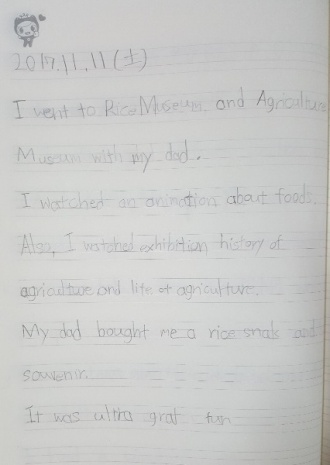 2017.11.11(土)
I went to Rice Museum and Agriculture
Museum with my dad.
I watched an animation about foods.
Also, I watched exhibition history of
agriculture and life of agriculture.
My dad bought me a rice snak and
souvenir.
It was ultra grat fun